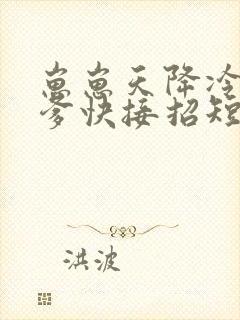 崽崽天降冷
爹快接招短
洪波